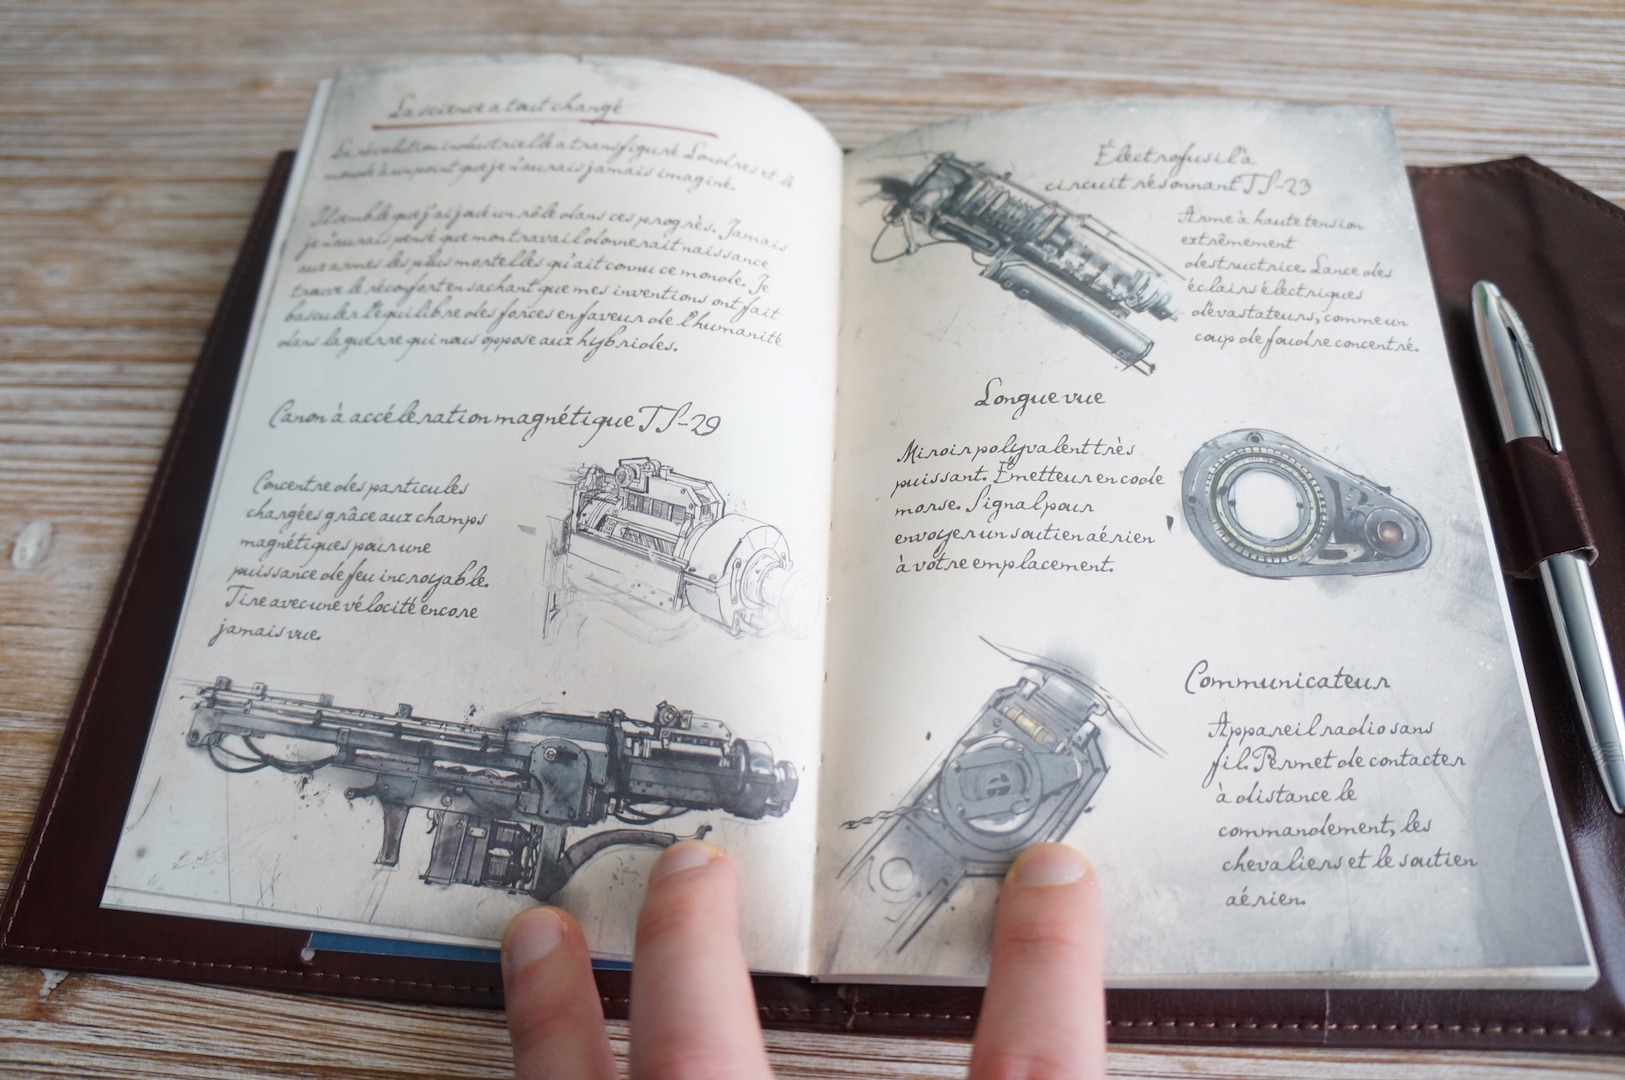 La science a tout changé
La révolution industrielle a transfiguré Londres et le
monde à un point que je n'aurais jamais imaginé.
Il semble que j'ai joué un rôle dans ces progrès. Jamais
je n'aurais pensé que mon travail donnerait naissance
aux armes les plus mortelles qu'ait connu ce monde. Je
trouve le réconfort en sachant que mes inventions ont fait
basculer l'équilibre des forces en faveur de l'humanité
dans la guerre qui nous oppose aux hybrides.
Canon à accélération magnétique TS-29
Concentre des particules
chargées grâce aux champs
magnétiques pour une
puissance de feu incroyable.
Tire avec une vélocité encore
jamais vue.
Électrofusil à
circuit résonnant TS-23
Arme à haute tension
extrêmement
destructrice. Lance des
éclairs électriques
dévastateurs, comme un
coup de foudre concentré.
Longue vue
Miroir polyvalent très
puissant. Émetteur en code
morse. Signal pour
envoyer un soutien aérien
à votre emplacement.
Communicateur
Appareil radio sans
fil. Permet de contacter
à distance le
commandement, les
chevaliers et le soutien
aérien.